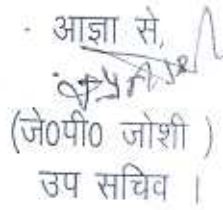 आज्ञा से,
(जे0पी0 जोशी )
उप सचिव ।